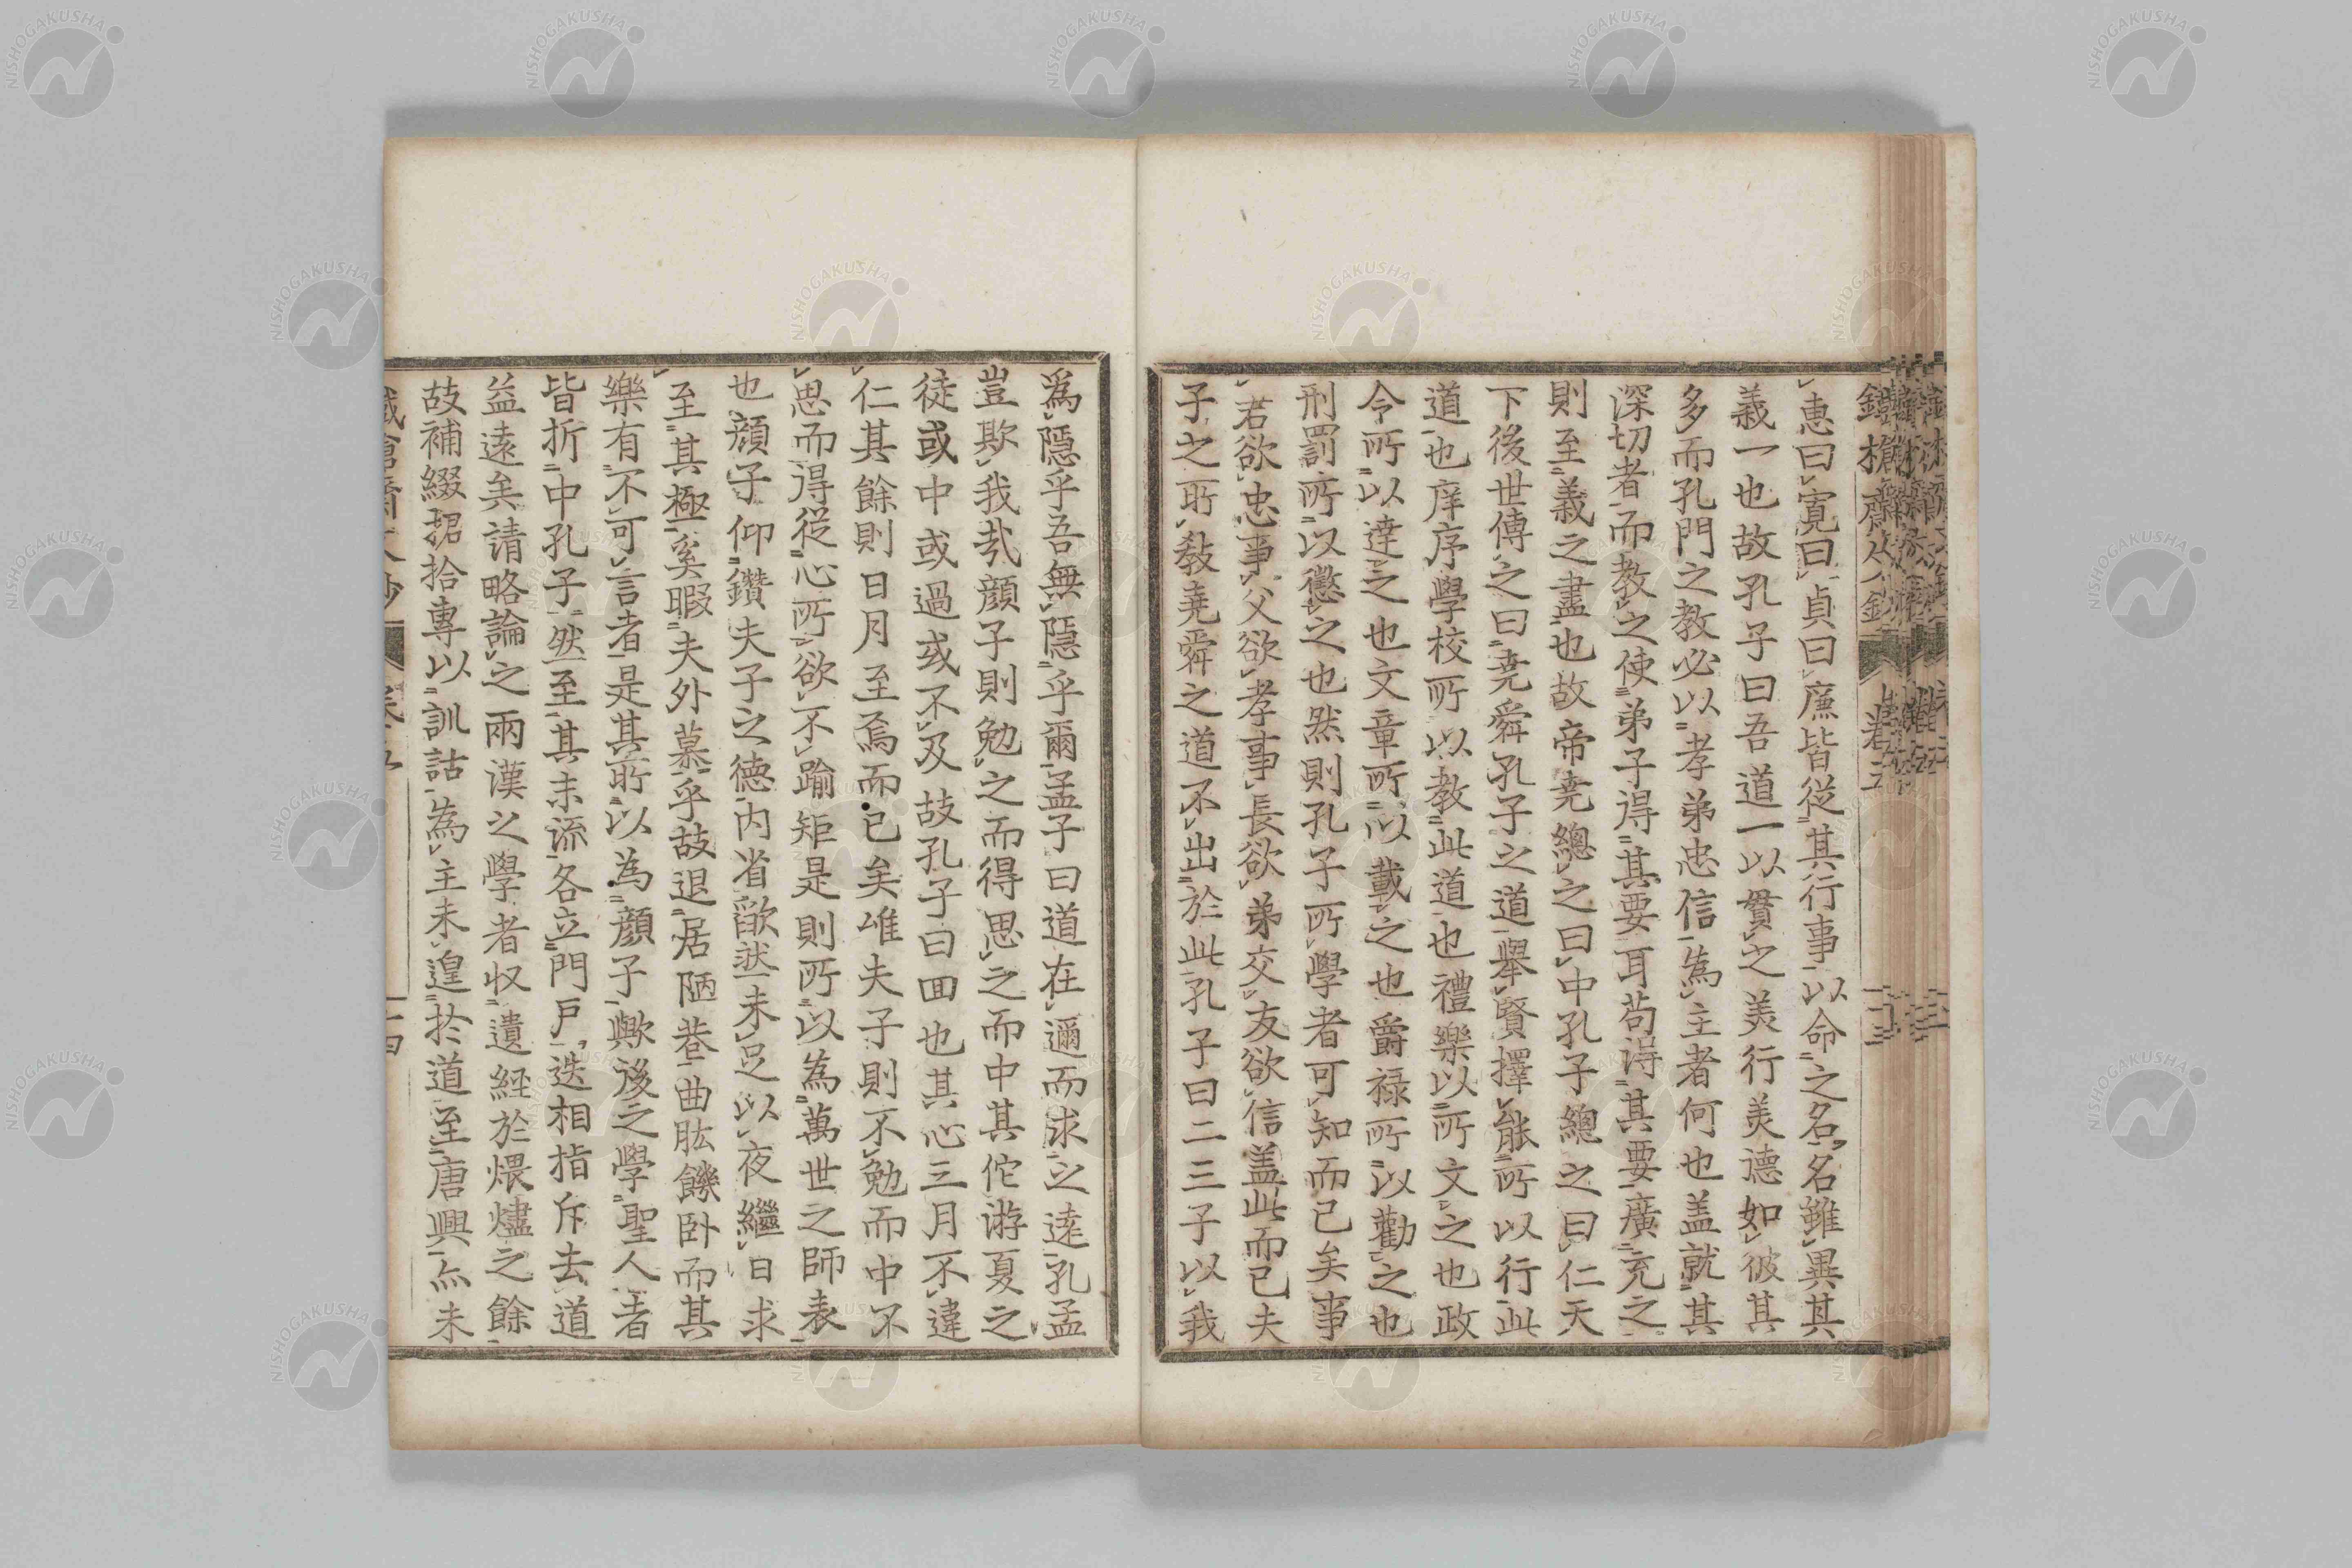 惠曰寛曰貞曰廉皆從其行事以命之名名雖異其
義一也故孔子曰吾道一以貫之美行美德如彼其
多而孔門之教必以孝弟忠信爲主者何也盖就其
深切者而教之使弟子得其要耳苟得其要廣充之
則至義之盡也故帝堯總之曰中孔子總之曰仁天
下後世傳之曰堯舜孔子之道舉賢擇能所以行此
道也庠序學校所以教此道也禮樂以所文之也政
令所以達之也文章所以載之也爵禄所以勸之也
刑罰所以懲之也然則孔子所學者可知而已矣事
君欲忠事父欲孝事長欲弟交友欲信盖此而已夫
子之所教堯舜之道不出於此孔子曰二三子以我
爲隱乎吾無隱乎爾孟子曰道在邇而求之遠孔孟
豈欺我哉顔子則勉之而得思之而中其佗游夏之
徒或中或過或不及故孔子曰回也其心三月不違
仁其餘則日月至焉而已矣唯夫子則不勉而中不
思而得從心所欲不踰矩是則所以為萬世之師表
也顔子仰鑽夫子之德内省歆然未足以夜繼日求
至其極奚暇夫外慕乎故退居陋巷曲肱饑卧而其
樂有不可言者是其所以為顔子歟後之學聖人者
皆折中孔子然至其末流各立門戸迭相指斥去道
益遠矣請略論之兩漢之學者収遺經於煨燼之餘
故補綴捃拾專以訓詁為主未遑於道至唐興亦未